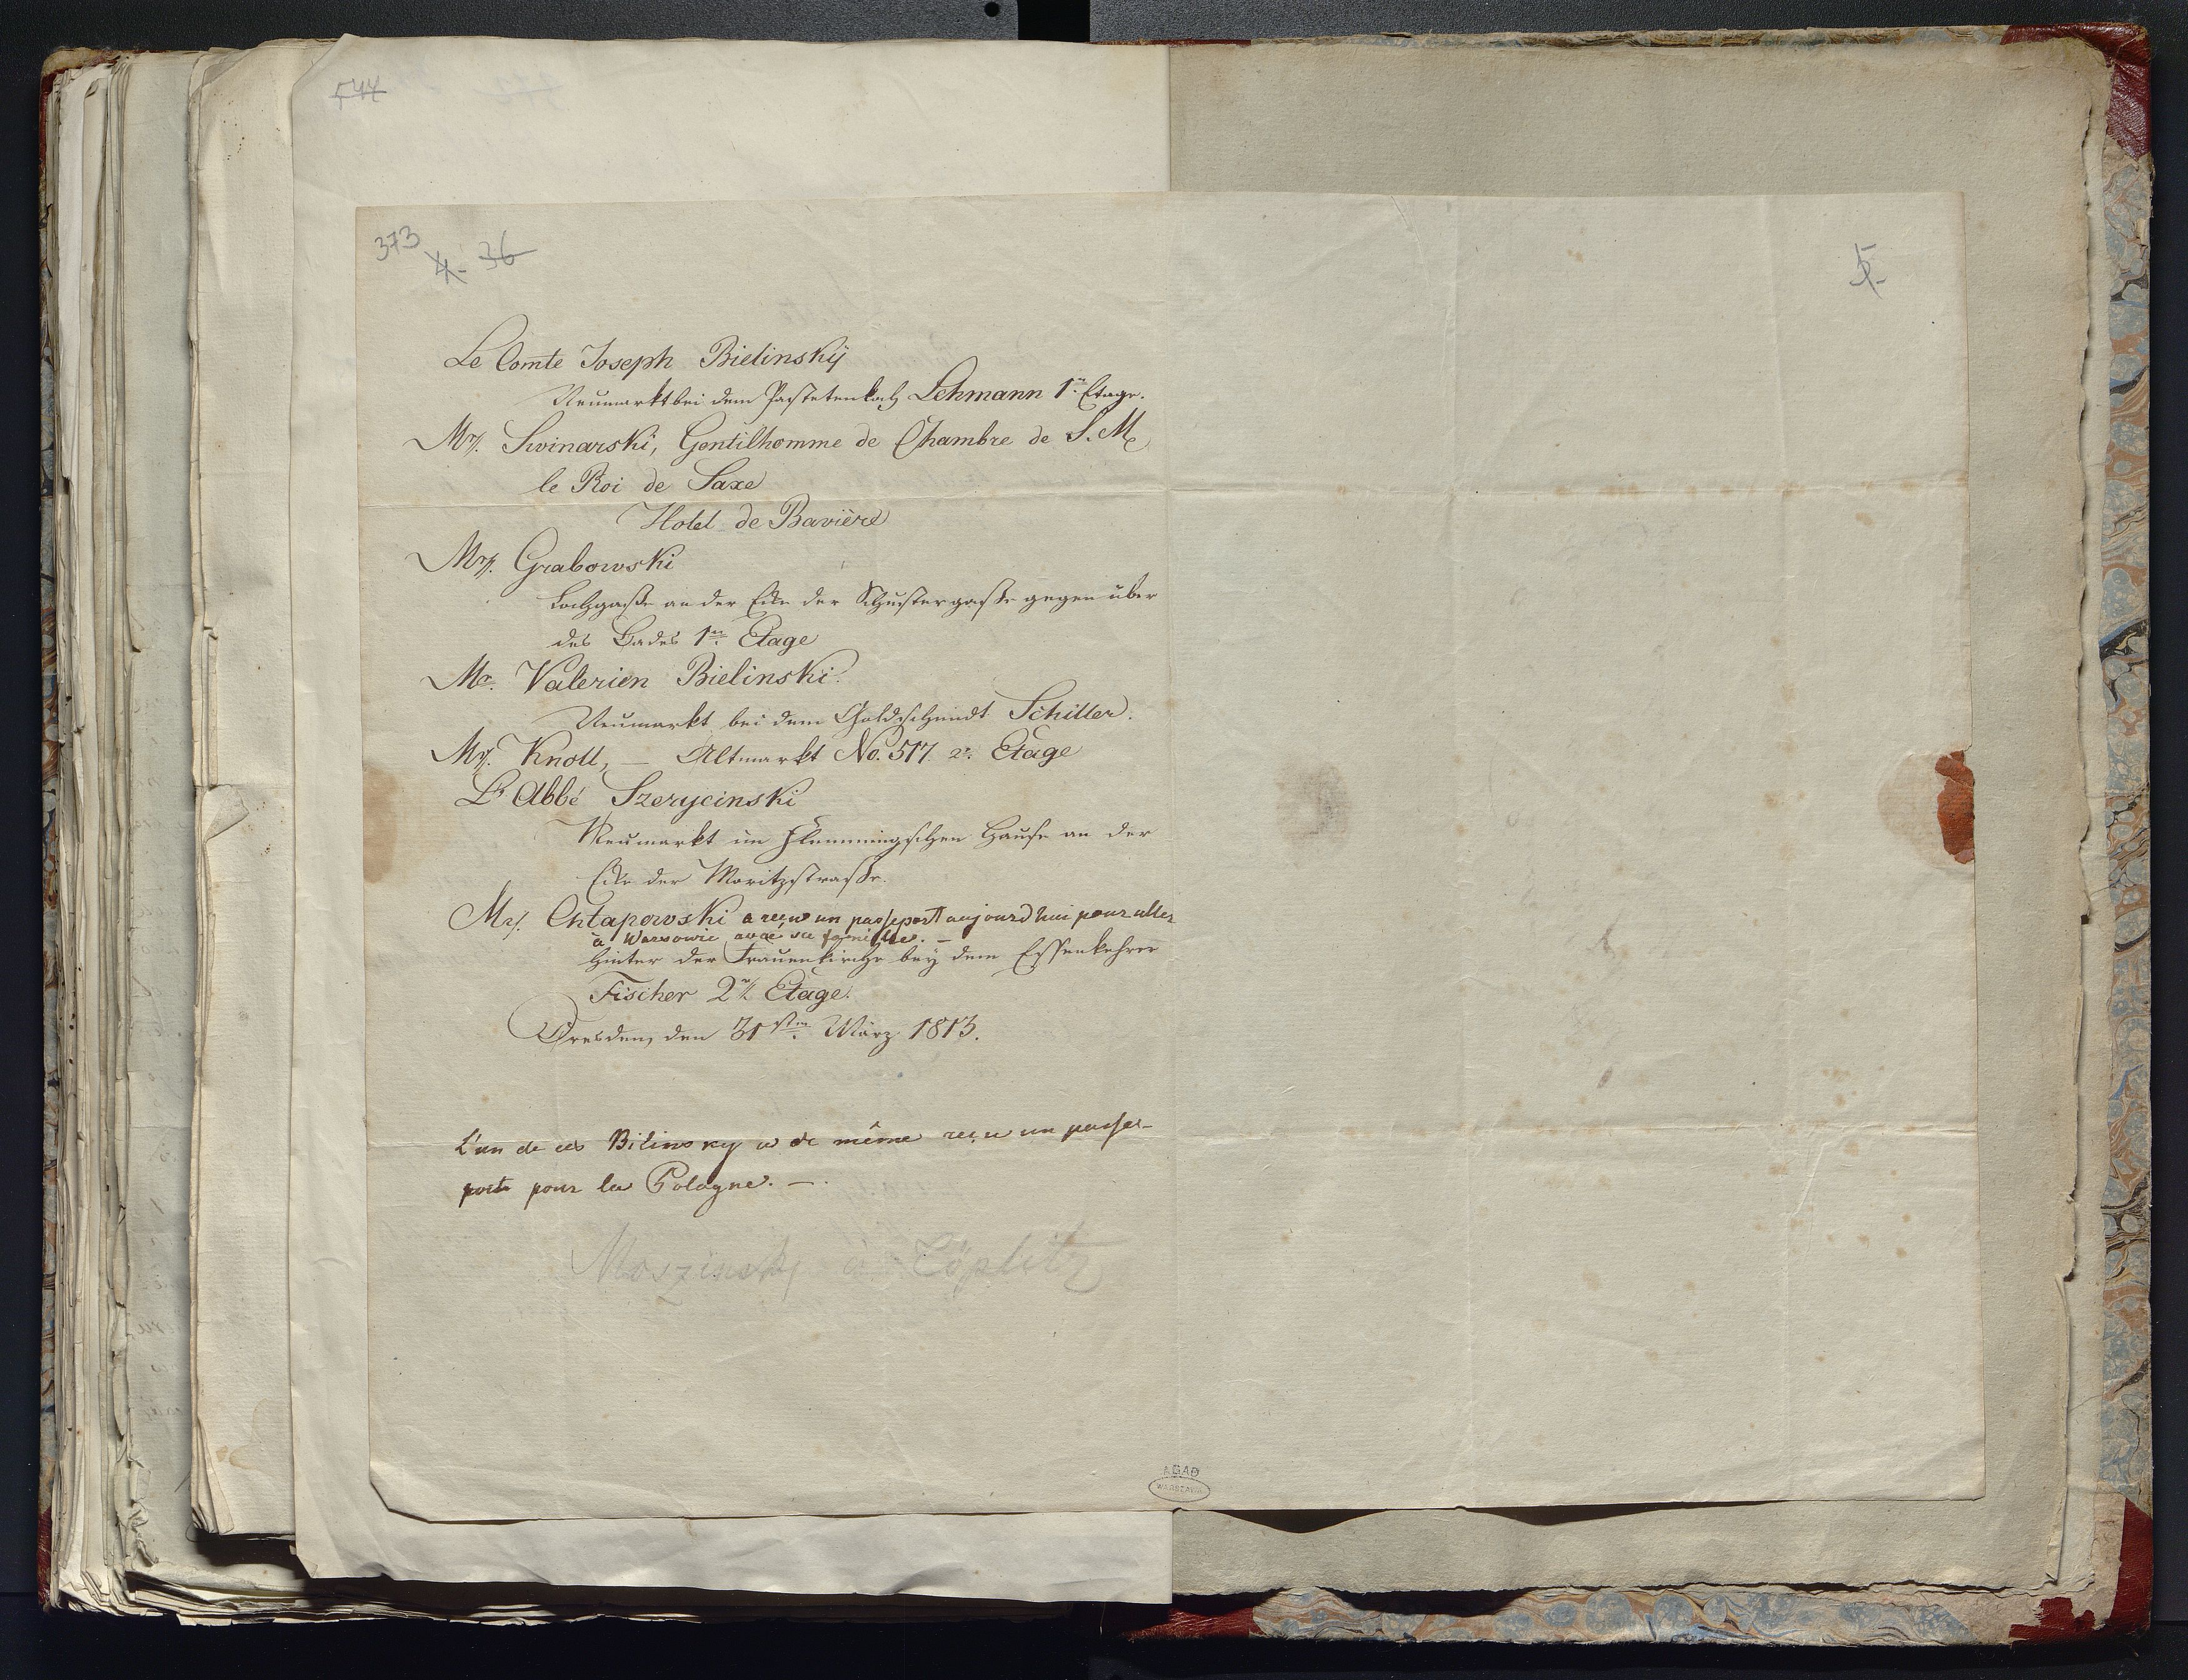 544
373
4- 36
5-
Le Comte Joseph Bielinskÿ
Neumarkt bei dem Pastetenkoch Lehmann 1te Etage.
Mr. Swinarski, Gentilhomme de Chambre de S. M.
le Roi de Saxe
Hotel de Bavière
Mr. Grabowski
Lochgaße an der Ecke der Schustergaße gegen über
des Bades 1te Etage
Mr. Valerien Bielinski.
Neumarkt bei dem Goldschmidt Schiller.
Mr. Knoll, — Altmarkt No. 517. 2e Etage
L'Abbé Szerycinski
Neumarkt im Flemmingschen Hause an der
Ecke der Moritzstraße.
Mr. Chtapowski a reçu un passeport aujourd'hui pour aller
à Warsowie avec sa famille. —
hinter der Frauenkirche bey dem Essenkehrer
Fischer 2te Etage.
Dresden, den 31sten März 1813.
L'un de ces Bilinsky a de même reçu un passe-
port pour la Pologne. —.
Moszinsky à Töplitz
AGAD
WARSZAWA